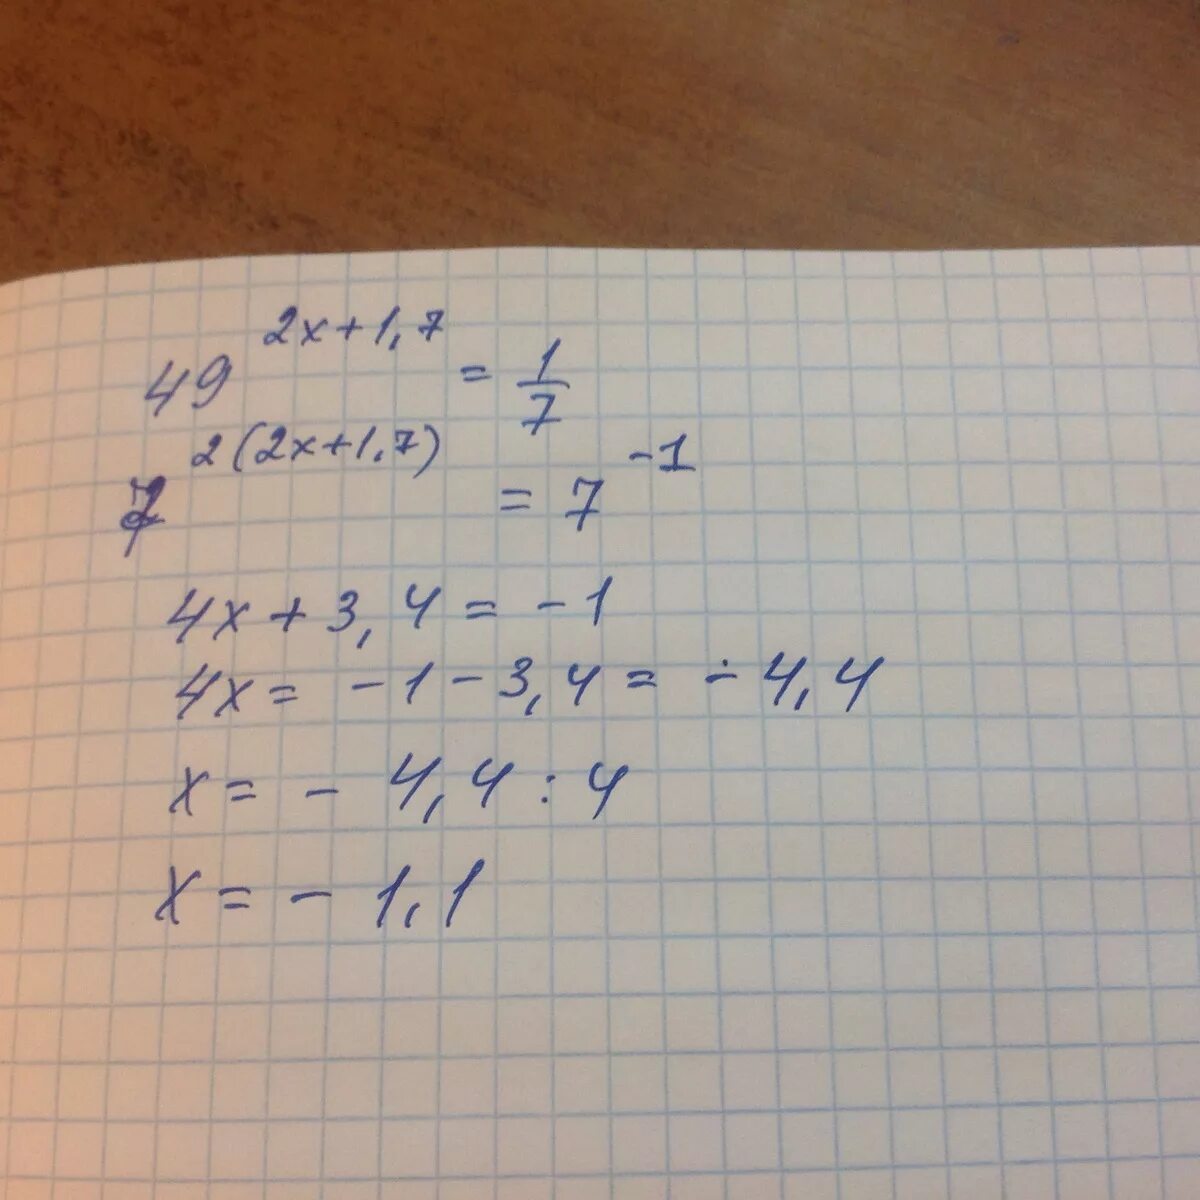 49^(2x+1,7) = 1/7
7^(2(2x+1,7)) = 7^(-1)
4x + 3,4 = -1
4x = -1 - 3,4 = -4,4
x = - 4,4 : 4
x = - 1,1